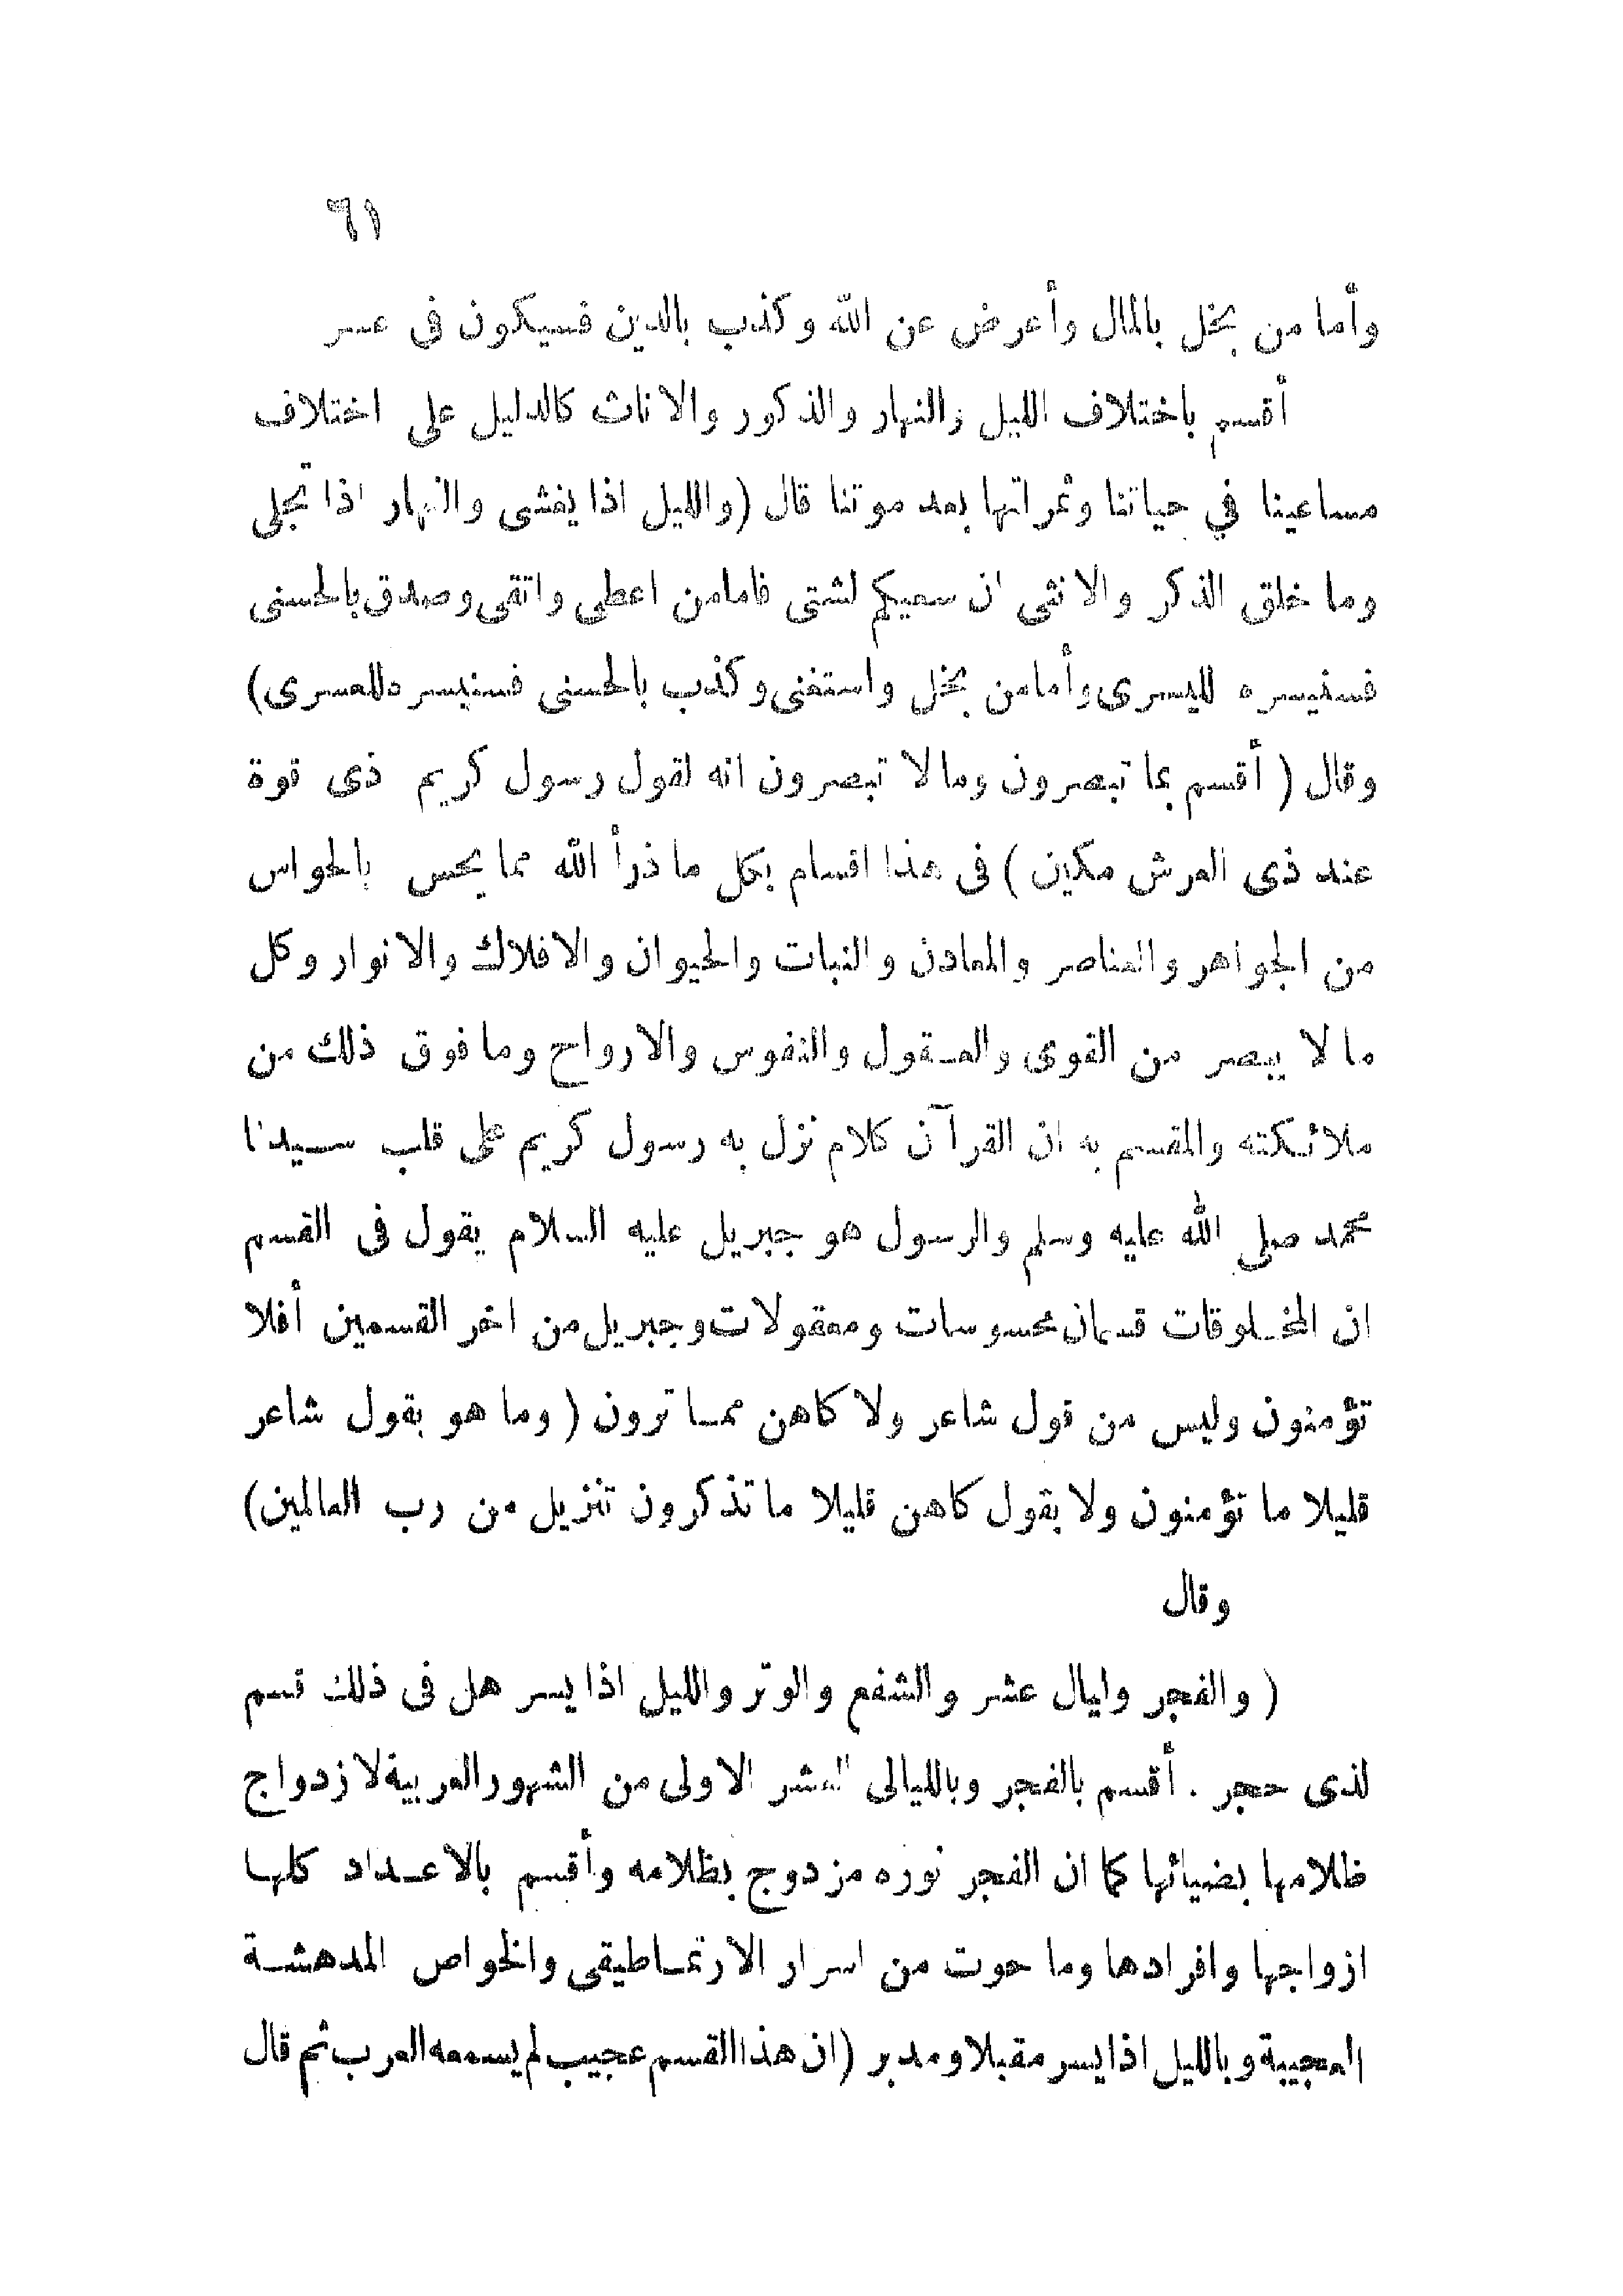 ٦١
وأما من بخل بالمال وأعرض عن الله وكذب بالدين فسيكون فى عسر
أقسم باختلاف الليل والنهار والذكور والاناث كالدليل على اختلاف
مساعينا في حياتنا وثمراتها بعد موتنا قال (والليل اذا يغشى والنهار اذا تجلى
وما خلق الذكر والانثى ان سعيكم لشتى فامامن اعطى واتقى وصدق بالحسنى
فسنيسره لليسرى وأمامن بخل واستغنى وكذب بالحسنى فسنيسره للعسرى)
وقال ( أقسم بما تبصرون ومالا تبصرون انه لقول رسول كريم ذى قوة
عند ذى العرش مكين ) فى هذا اقسام بكل ما ذرأ الله مما يحس بالحواس
من الجواهر والعناصر والمعادن والنبات والحيوان والافلاك والانوار وكل
ما لا يبصر من القوى والعقول والنفوس والارواح وما فوق ذلك من
ملائكته والمقسم به ان القرآن كلام نزل به رسول كريم على قلب سيدنا
محمد صلى الله عليه وسلم والرسول هو جبريل عليه السلام يقول فى القسم
ان المخلوقات قسمان محسوسات ومعقولات وجبريل من اخر القسمين أفلا
تؤمنون وليس من قول شاعر ولا كاهن مما ترون ( وما هو بقول شاعر
قليلا ما تؤمنون ولا بقول كاهن قليلا ما تذكرون تنزيل من رب العالمين)
وقال
( والفجر وليال عشر والشفع والوتر والليل اذا يسر هل فى ذلك قسم
لذى حجر . أقسم بالفجر وبالليالى العشر الاولى من الشهور العربية لازدواج
ظلامها بضيائها كما ان الفجر نوره مزدوج بظلامه وأقسم بالاعداد كلها
ازواجها وافرادها وما حوت من اسرار الارتماطيقى والخواص المدهشة
العجيبة وبالليل اذا يسر مقبلا ومدبر (ان هذا القسم عجيب لم يسمعه العرب ثم قال